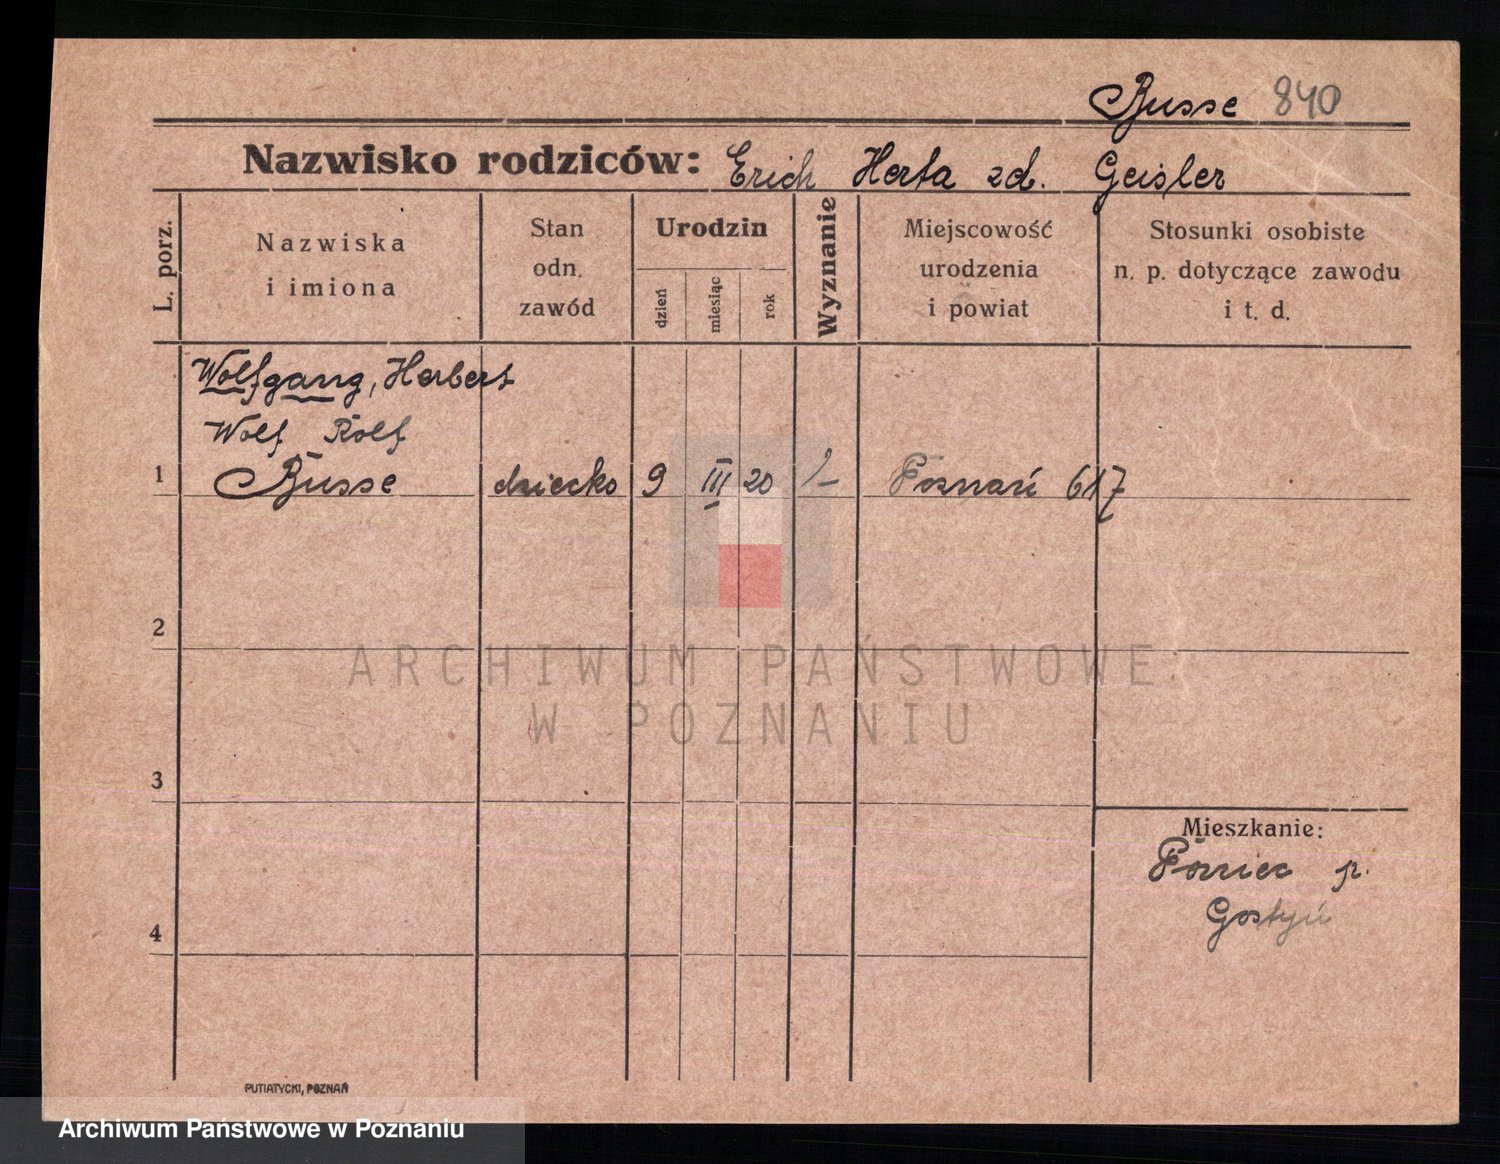 Busse 840
Nazwisko rodziców: Erich Herta zd. Geisler
L. porz.
Nazwiska
i imiona
Stan
odn.
zawód
Urodzin
dzień
miesiąc
rok
Wyznanie
Miejscowość
urodzenia
i powiat
Stosunki osobiste
n. p. dotyczące zawodu
i t. d.
Wolfgang, Herbert
Wolf Rolf
1 Busse dziecko 9 III 20 Poznań
2
3
4
Mieszkanie:
Poniec p.
Gostyń
ARCHIWUM PAŃSTWOWE
W POZNANIU
PUTIATYCKI, POZNAŃ
Archiwum Państwowe w Poznaniu